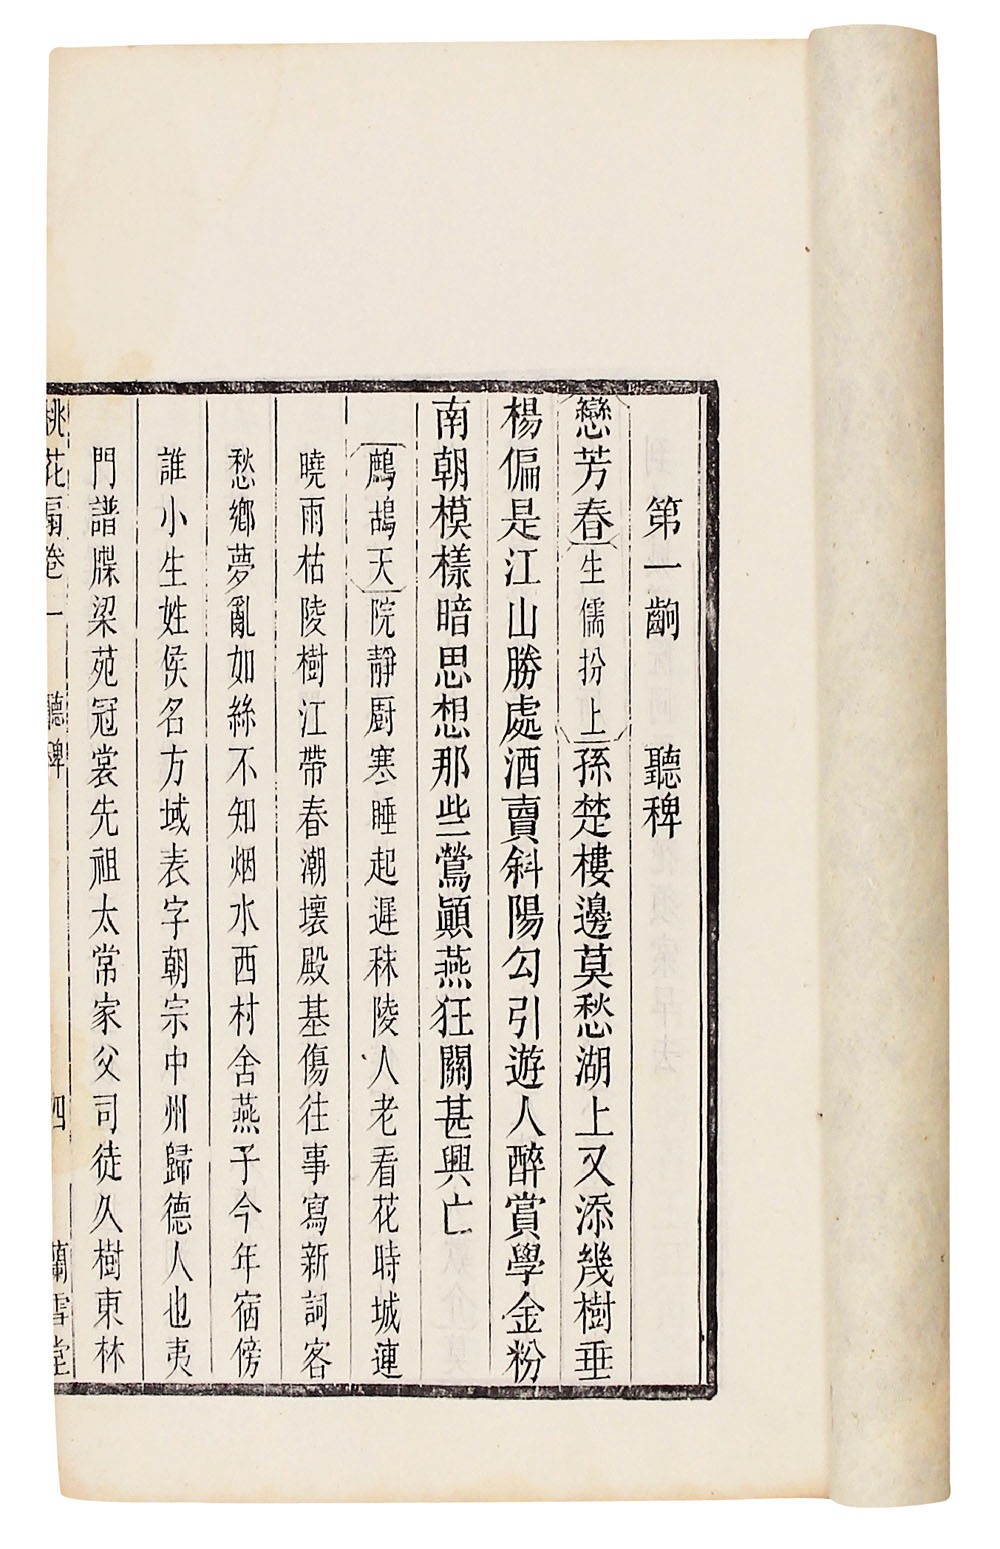 第一齣 聽稗
戀芳春生儒扮上孫楚樓邊莫愁湖上又添幾樹垂
楊偏是江山勝處酒賣斜陽勾引遊人醉賞學金粉
南朝模樣暗思想那些鶯顚燕狂關甚興亡
鷓鴣天院靜厨寒睡起遲秣陵人老看花時城連
曉雨枯陵樹江帶春潮壞殿基傷往事寫新詞客
愁鄉夢亂如絲不知烟水西村舍燕子今年宿傍
誰小生姓侯名方域表字朝宗中州歸德人也夷
門譜牒梁苑冠裳先祖太常家父司徒久樹東林
桃花扇卷一 聽稗 四 蘭雪堂